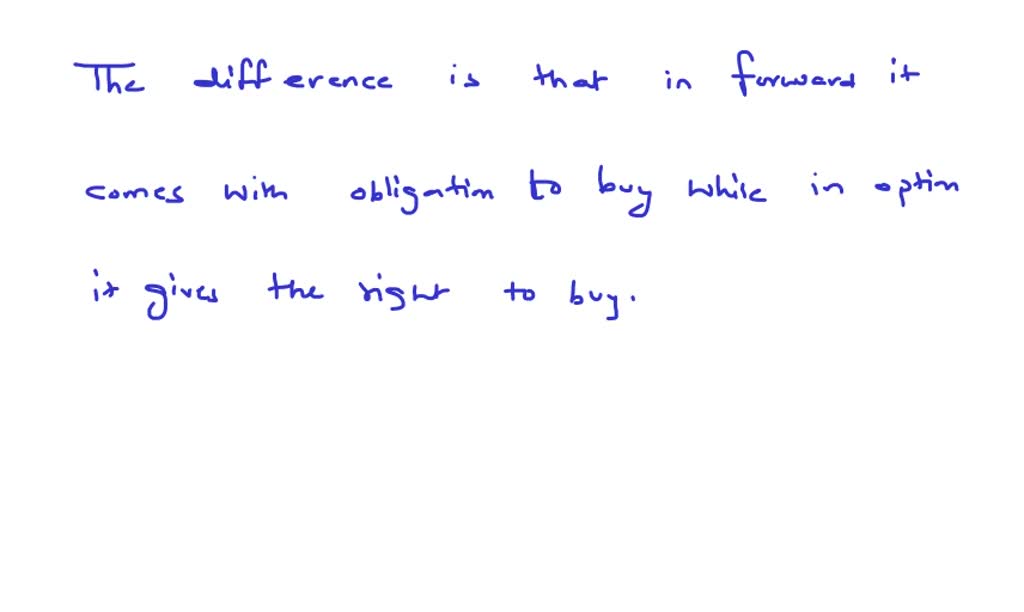 The difference is that in forward it
comes with obligation to buy while in option
it gives the right to buy.